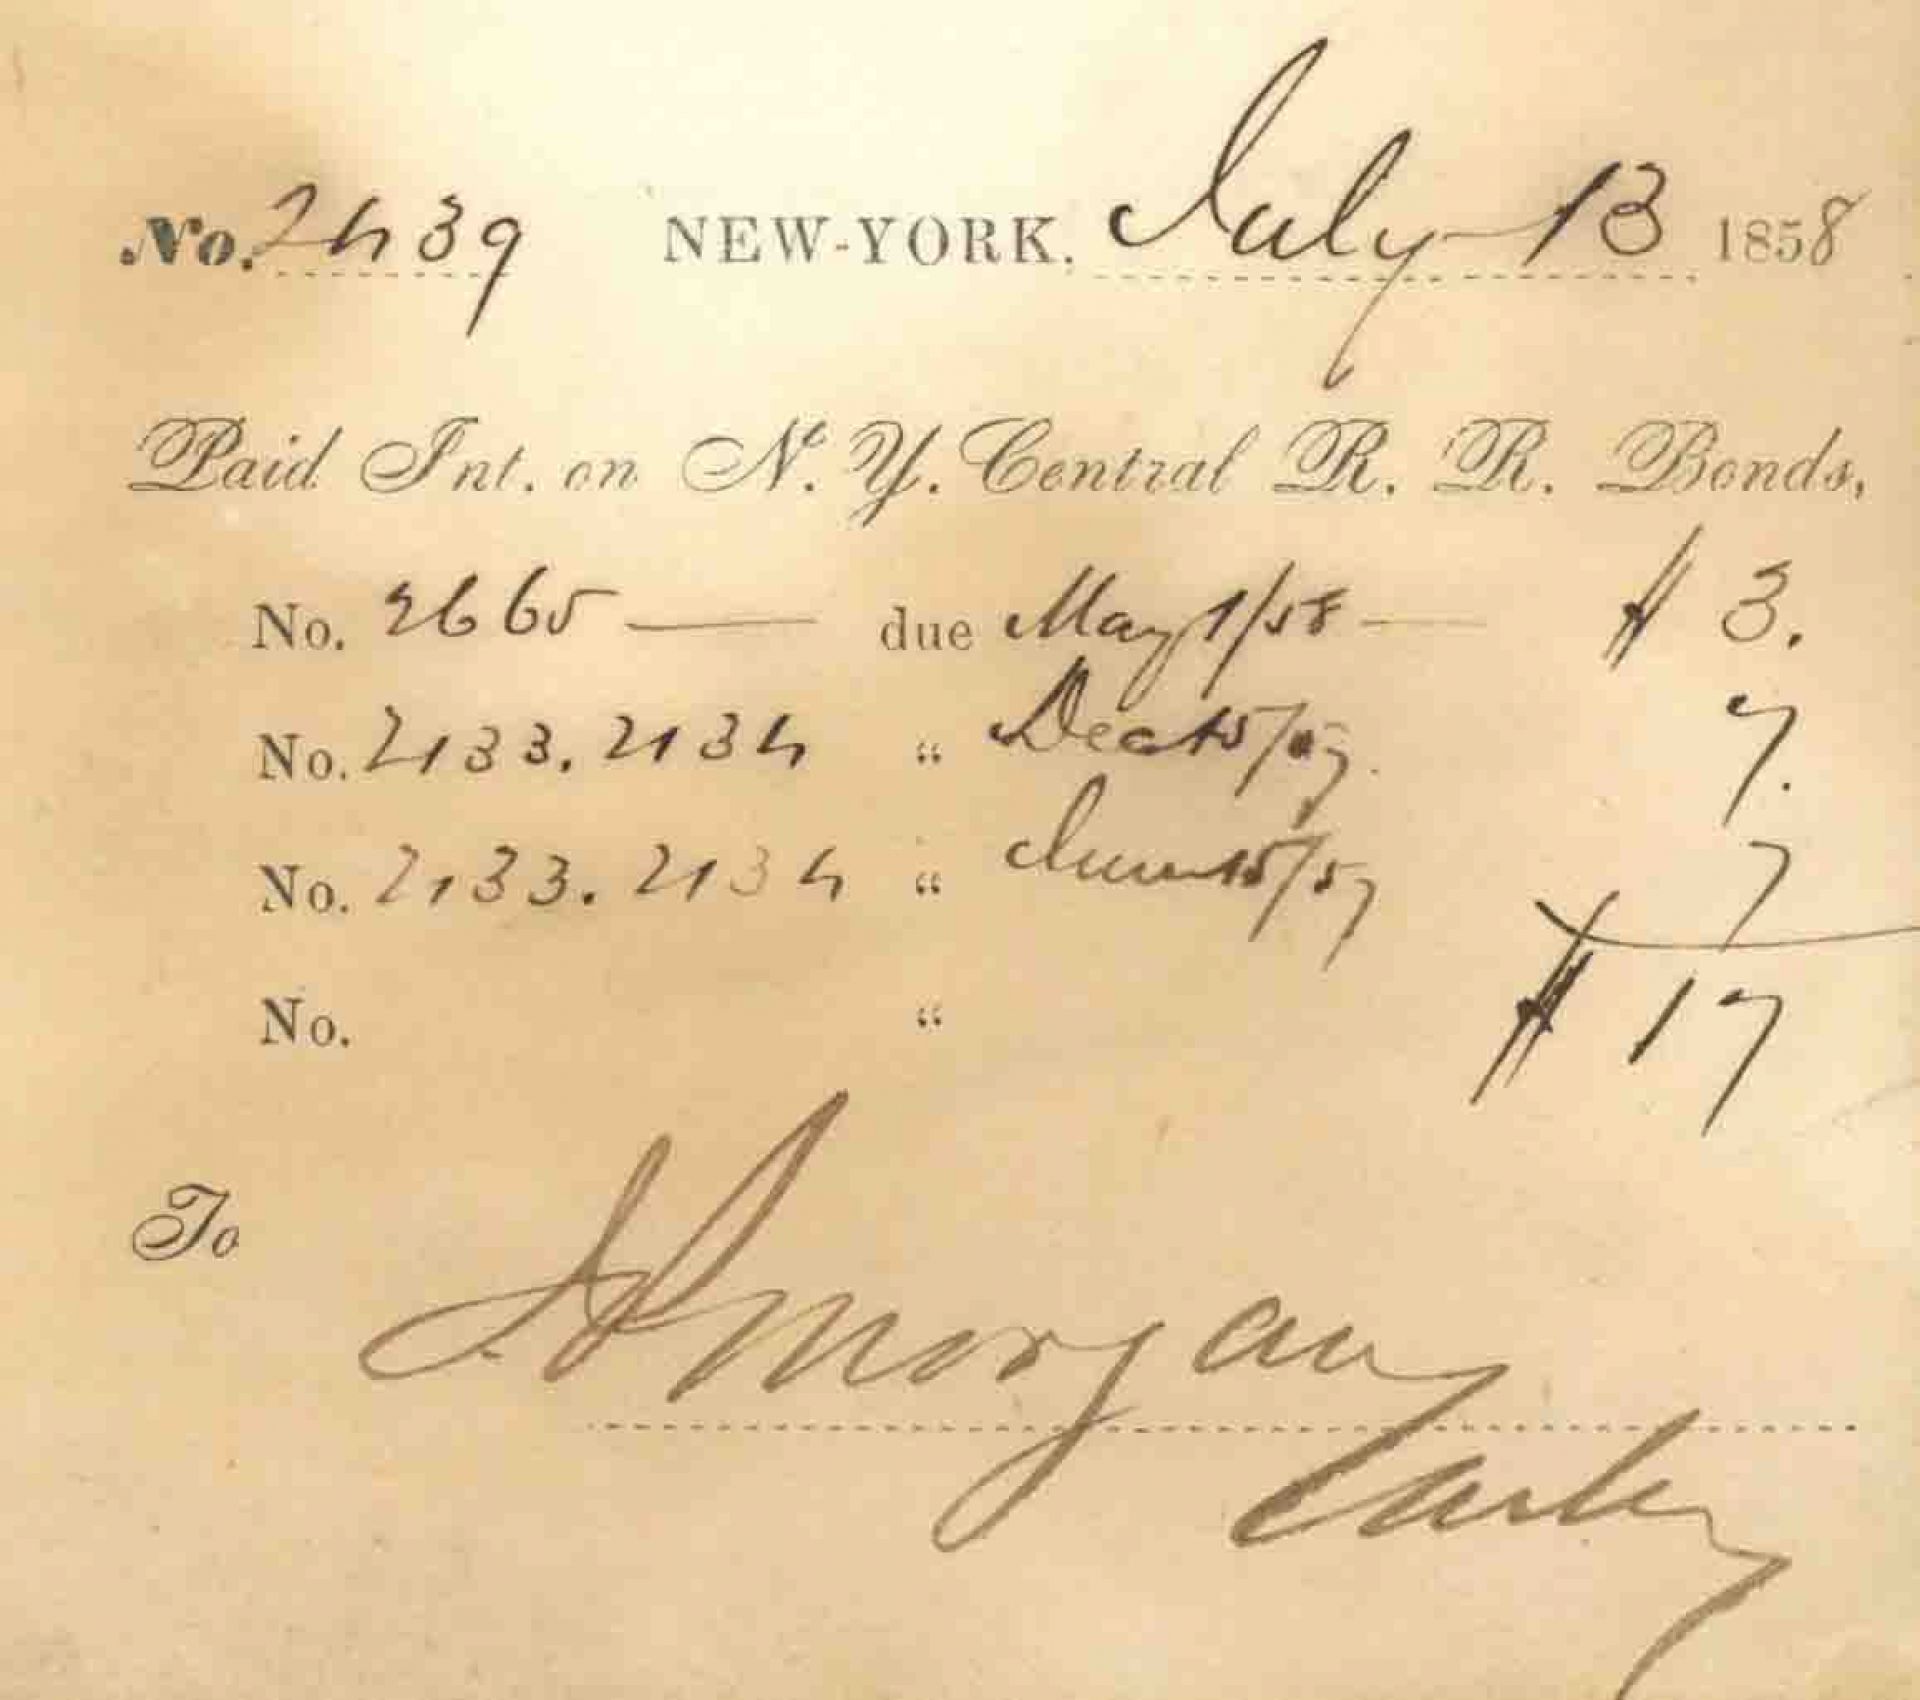 No. 2439 NEW-YORK. July 13 1858
Paid Int. on N. Y. Central R. R. Bonds,
No. 2665 — due May 1/58 — $ 3.
No. 2133. 2134 “ Dec 15/57. 7.
No. 2133. 2134 “ June 15/57 7
No. “ $ 17
To
Morgan